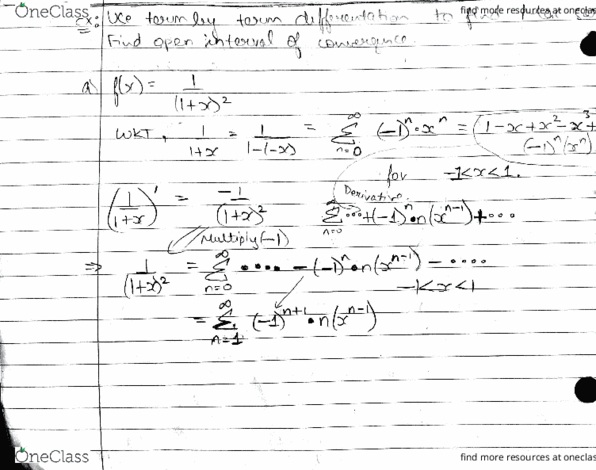 OneClass
find more resources at oneclas
Ex: Use term by term differentiation to
Find open interval of convergence
a) f(x) = 1/(1+x)²
WKT, 1/(1+x) = 1/(1-(-x)) = ∑_{n=0}^{∞} (-1)ⁿ·xⁿ = (1-x+x²-x³+
(-1)ⁿ(xⁿ)
for -1<x<1.
Derivative
(1/(1+x))' = -1/(1+x)² ∑_{n=0} ···+(-1)ⁿ•n(xⁿ⁻¹)+···
Multiply (-1)
⇒ 1/(1+x)² = ∑_{n=0}^{∞} •••• -(-1)ⁿ•n(xⁿ⁻¹) - ••••
-1<x<1
= ∑_{n=1}^{∞} (-1)ⁿ⁺¹•n(xⁿ⁻¹)
OneClass
find more resources at oneclas